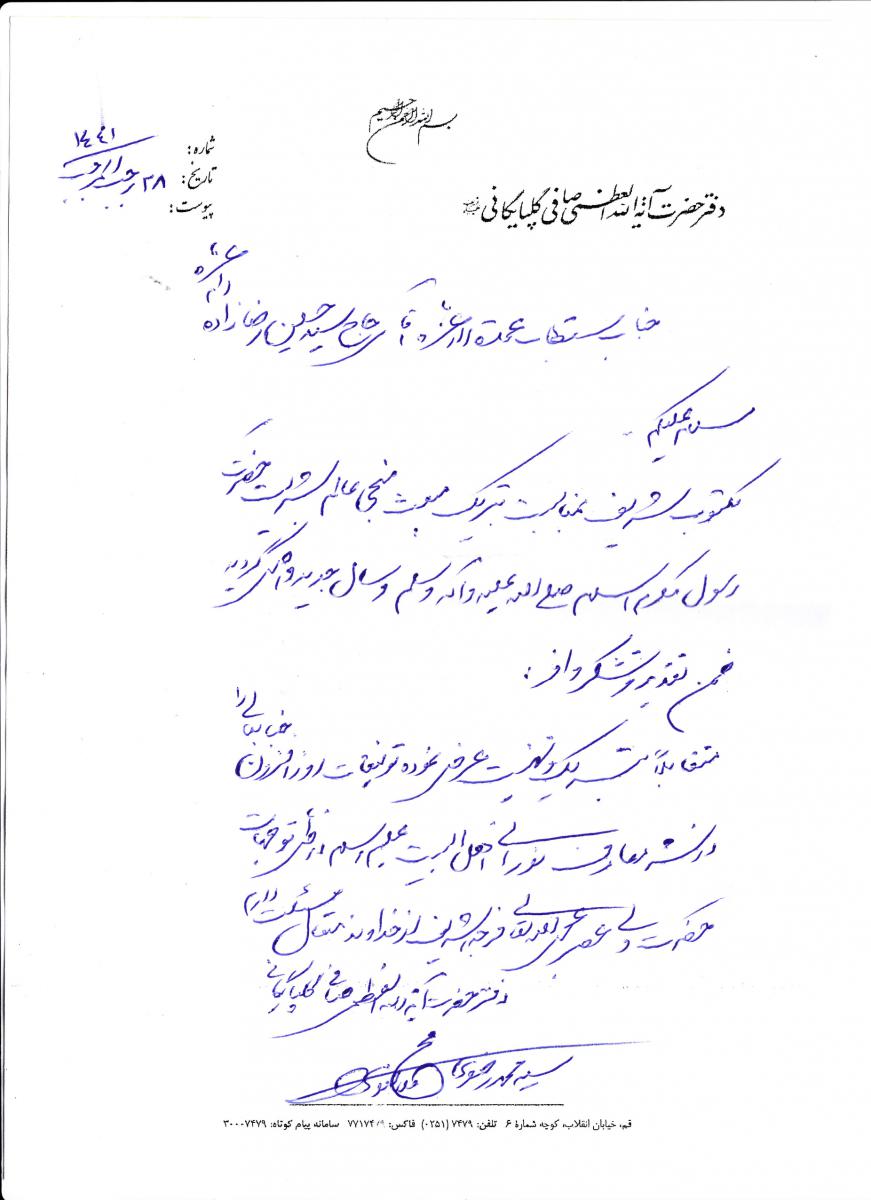 بسم الله الرحمن الرحیم
شماره: ۱۴۴۱
تاریخ: ۲۸ رجب المرجب
پیوست:
دفتر حضرت آیة الله العظمی صافی گلپایگانی
جناب مستطاب عمدة الاعزه آقای حاج سید حسین رضازاده دام عزه
سلام علیکم
مکتوب شریف بمناسبت تبریک مبعث منجی عالم بشریت حضرت
رسول مکرم اسلام صلی الله علیه وآله وسلم و سال جدید واصل گردید
ضمن تقدیر و تشکر وافر:
متقابلاً تبریک و تهنیت عرض نموده توفیقات روزافزون جنابعالی را
در نشر معارف نورانی اهل البیت علیهم السلام در ظل توجهات
حضرت ولی عصر عجل الله تعالی فرجه الشریف از خداوند متعال مسئلت داریم
دفتر حضرت آیة الله العظمی صافی گلپایگانی
سید محمد رضوی
قم، خیابان انقلاب، کوچه شمارهٔ ۶ تلفن: ۷۴۷۹ (۰۲۵۱) فاکس: ۷۷۱۷۴۰۹ سامانه پیام کوتاه: ۳۰۰۰۷۴۷۹